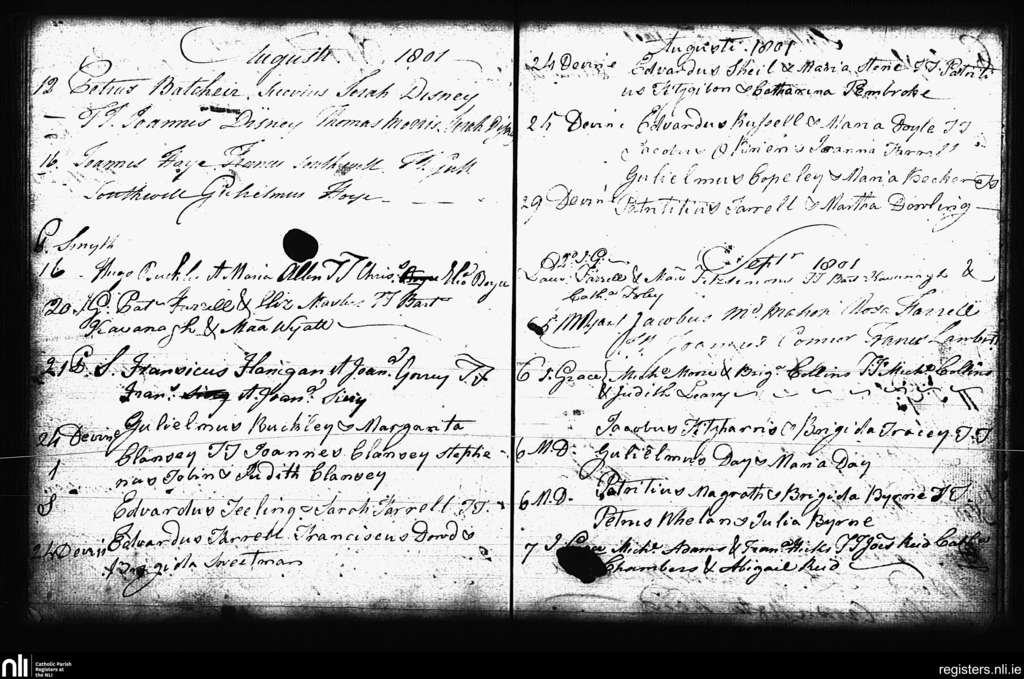 Augusti 1801
12 Petrus Batcheir Sarah Disney
TT. Joannes Disney Thomas Morris Sarah Disney
16 Joannes Hoye Southwell
Southwell Gulielmus Hoye
P. Smyth
16 Hugo & Maria Allen TT Chris. & Eliz Boyce
20 J.G. Pat. Farrell & Eliz TT Bart
Kavanagh & Maa Wyatt
21 P. S. Franсicus Flanigan & Joan. TT
Fran. & Joan.
Gulielmus Buckley & Margarita
24 Devine Clansey TT Joannes Clansey Stephe-
1 nus Tobin & Judith Clansey
8 Edvardus Feeling & Sarah Farrell TT.
24 Devin Edvardus Farrell Franciscus Dowd &
Brigida Sweetman
Augusti 1801
24 Devine Edvardus Sheil & Maria Stone TT. Patriti
us Fitzgibon & Catharina Pembroke
25 Devine Edvardus Russell & Maria Doyle TT
Jacobus & Joanna Farrell
Gulielmus Copeley & Maria Becker TT
29 Devine Patritius Farrell & Martha Dowling
Septr 1801
Laur. Farrell & Maa Fitzsimons TT Bart Kavanagh &
Catha Foley
5 Jacobus McMahon Rosa Farrell
Joannes Connor Frances Lambert
6 J. Grace Michl Moore & Brigd Collins TT. Michl Collins
& Judith Leary
Jacobus Fitzharris & Brigida Tracey TT
6 M.D. Gulielmus Day & Maria Day
Patritius Magrath & Brigida Byrne TT.
6 M.D. Petrus Whelan & Julia Byrne
7 J. Michl Adams & Fran. Hicks TT Joes Reid Catha
Chambers & Abigail Reid
nli
Catholic Parish
Registers at
the NLI
registers.nli.ie